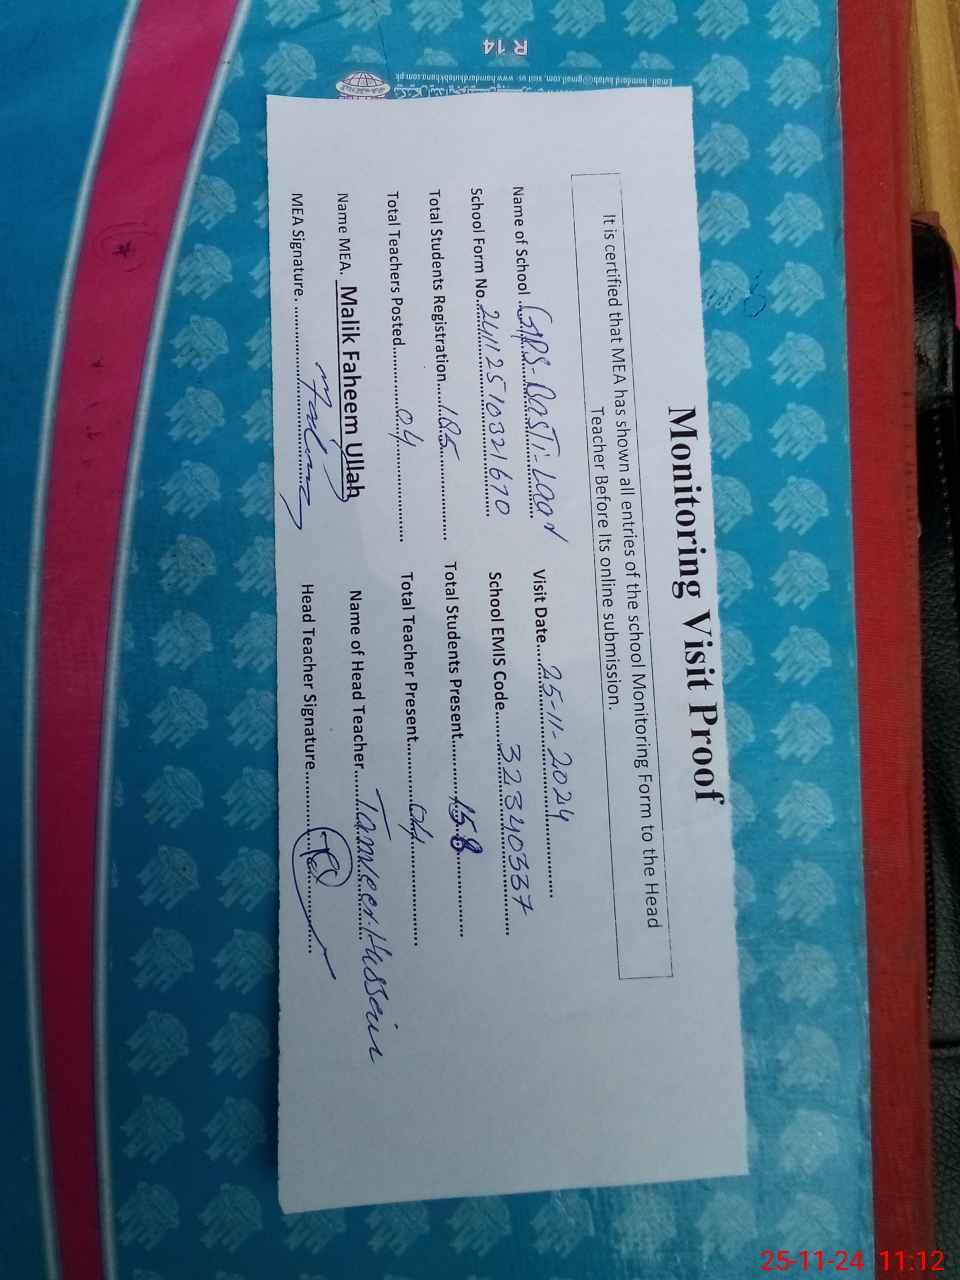 Monitoring Visit Proof
It is certified that MEA has shown all entries of the school Monitoring Form to the Head
Teacher Before Its online submission.
Name of School ....GPS-Basti-Laar Visit Date....25-11-2024
School Form No..24112510321670 School EMIS Code.......32340337
Total Students Registration.....185 Total Students Present..........158
Total Teachers Posted............04 Total Teacher Present..........04
Name MEA. Malik Faheem Ullah Name of Head Teacher....Tanveer.Hussain
MEA Signature. Head Teacher Signature
R 14
25-11-24 11:12